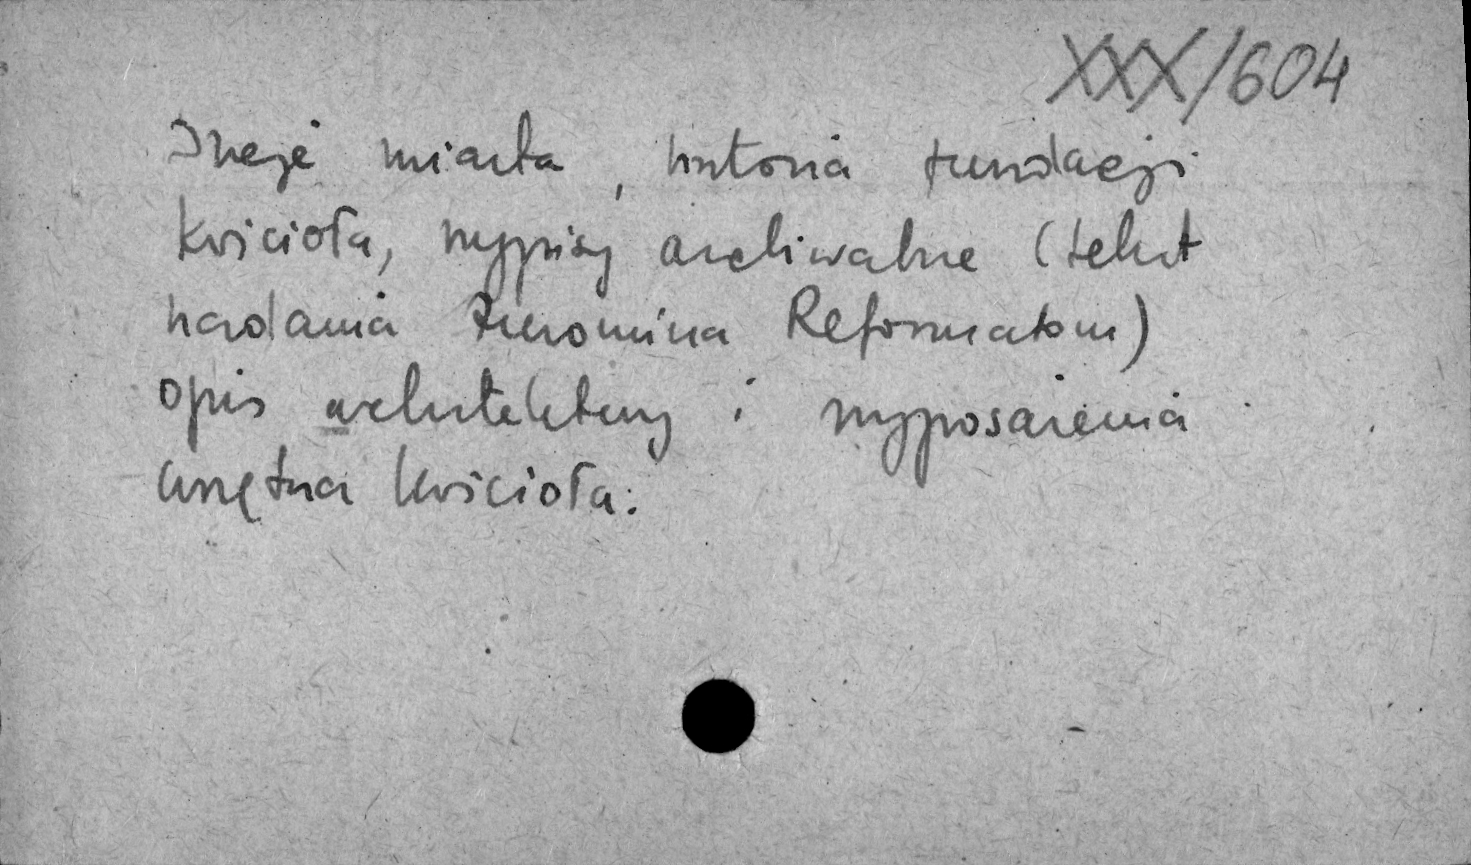 XXX/604
Dzieje miasta, historia fundacji
kościoła, wypisy archiwalne (tekst
nadania Żuromina Reformatom)
opis architektury i wyposażenia
wnętrza kościoła.